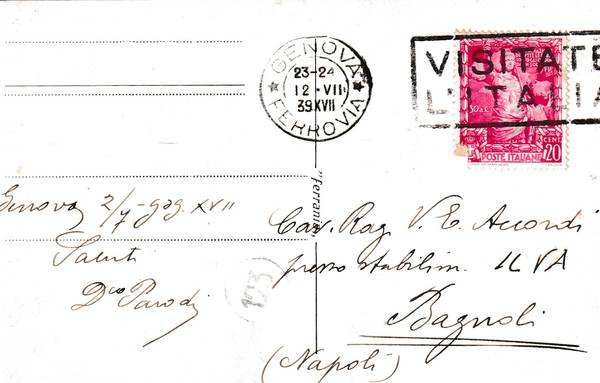 GENOVA
FERROVIA
23-24
12 · VII
39XVII
VISITATE
L'ITALIA
30 A.C.
POSTE ITALIANE
CENT
20
Genova 2/7-939 XVII
Saluti
Parodi
"Ferrania"
193
Cav. Rag. V. E. Accordi
presso stabilim. ILVA
Bagnoli
(Napoli)